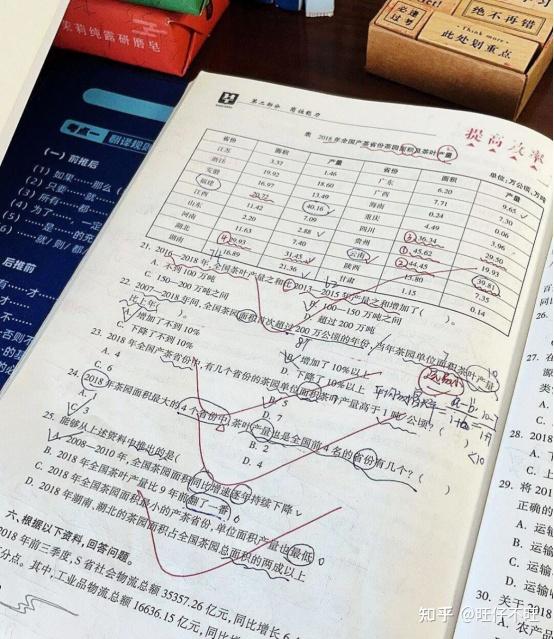 茉莉纯露研磨皂
绝不再错
必逢
过考
Think more
此处划重点
考点一 翻译规则
(一)前推后
(1)如果……那么
(2)只要……就
(3)所有……都
(4)为了……
(5)……是……的充
(6)……就/则/都
后推前
第二部分 资料能力
提高效率
表 2018年全国产茶省份茶园面积及茶叶产量
单位:万公顷,万吨
省份 面积 产量 省份 面积 产量
江苏 3.37 1.46 广东 6.20 9.65
浙江 19.92 18.60 广西 7.71 7.50
安徽 16.97 13.49 海南 0.24 0.06
福建 20.72 40.16 重庆 4.49 3.96
江西 11.42 7.09 四川 36.34 29.50
山东 2.20 2.88 贵州 45.62 19.93
河南 11.63 7.40 云南 44.45 39.81
湖北 29.93 31.45 陕西 13.80 7.35
湖南 16.89 21.36 甘肃 1.15 0.14
21. 2016—2018年,全国茶叶产量之和比2013—2015年产量之和增加了( )。
A. 不到100万吨 B. 100—150万吨之间
C. 150—200万吨之间 D. 超过200万吨
22. 2007—2018年间,全国茶园面积首次超过200万公顷的年份,当年茶园单位面积茶叶产量
比上年( )。
A. 增加了不到10% B. 增加了10%以上
C. 下降了不到10% D. 下降了10%以上
23. 2018年全国产茶省份中,有几个省份的茶园单位面积茶叶产量高于1吨/公顷?( )
A. 4 B. 5
C. 6 D. 7
24. 2018年茶园面积最大的4个省份中,茶叶产量也是全国前4名的省份有几个?( )
A. 1 B. 2
C. 3 D. 4
25. 能够从上述资料中推出的是( )
A. 2008—2010年,全国茶园面积同比增速逐年持续下降
B. 2018年全国茶叶产量比9年前翻了一番
C. 2018年全国茶园面积最小的产茶省份,单位面积产量也最低
D. 2018年湖南、湖北的茶园面积占全国茶园总面积的两成以上
六、根据以下资料,回答问题。
2018年前三季度,S省社会物流总额35357.26亿元,同比增长6.
分点。其中,工业品物流总额16636.15亿元,同比增
26.
27. 在
28. 2018
A.
C. 上
29. 将201
正确的
A. 运输
B. 运输
C. 运输
D. 运输
30. 关于2018
A. 农产
知乎 @旺仔不旺